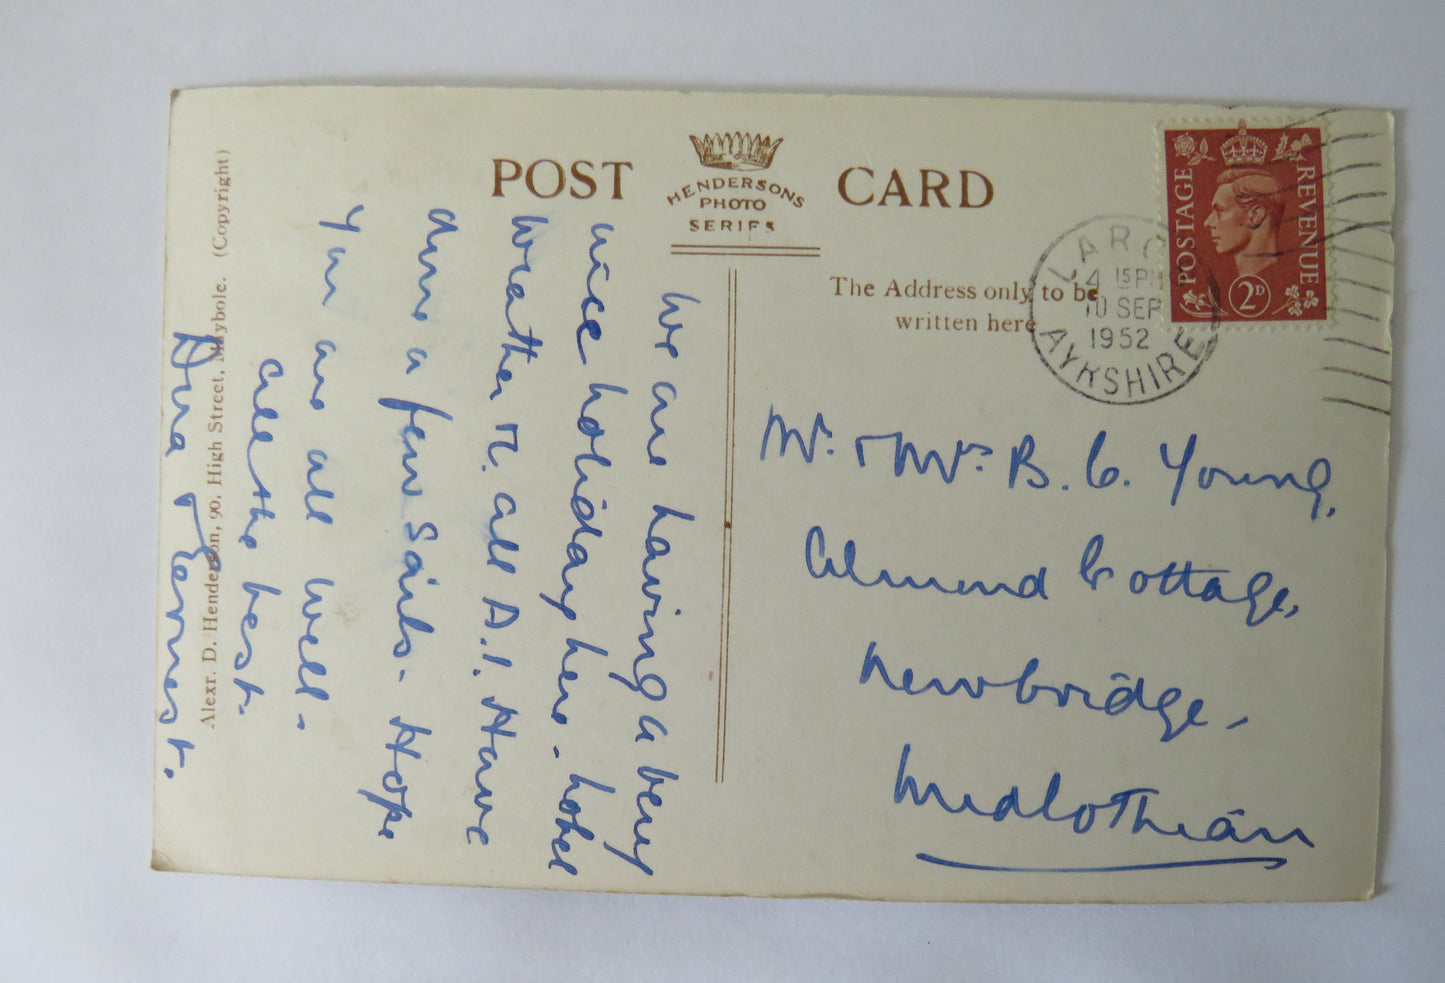 POST CARD
HENDERSONS
PHOTO
SERIES
The Address only to be
written here
POSTAGE
REVENUE
2D
LARG
4 15 PM
10 SEP
1952
AYRSHIRE
Mr. & Mrs B. C. Young,
Almond Cottage,
Newbridge,
Midlothian
We are having a very
nice holiday here. hotel
weather etc. all A.1. Have
done a few sails. Hope
you are all well.
All the best.
& Earnest.
Alexr. D. Henderson, 90, High Street, Maybole. (Copyright)